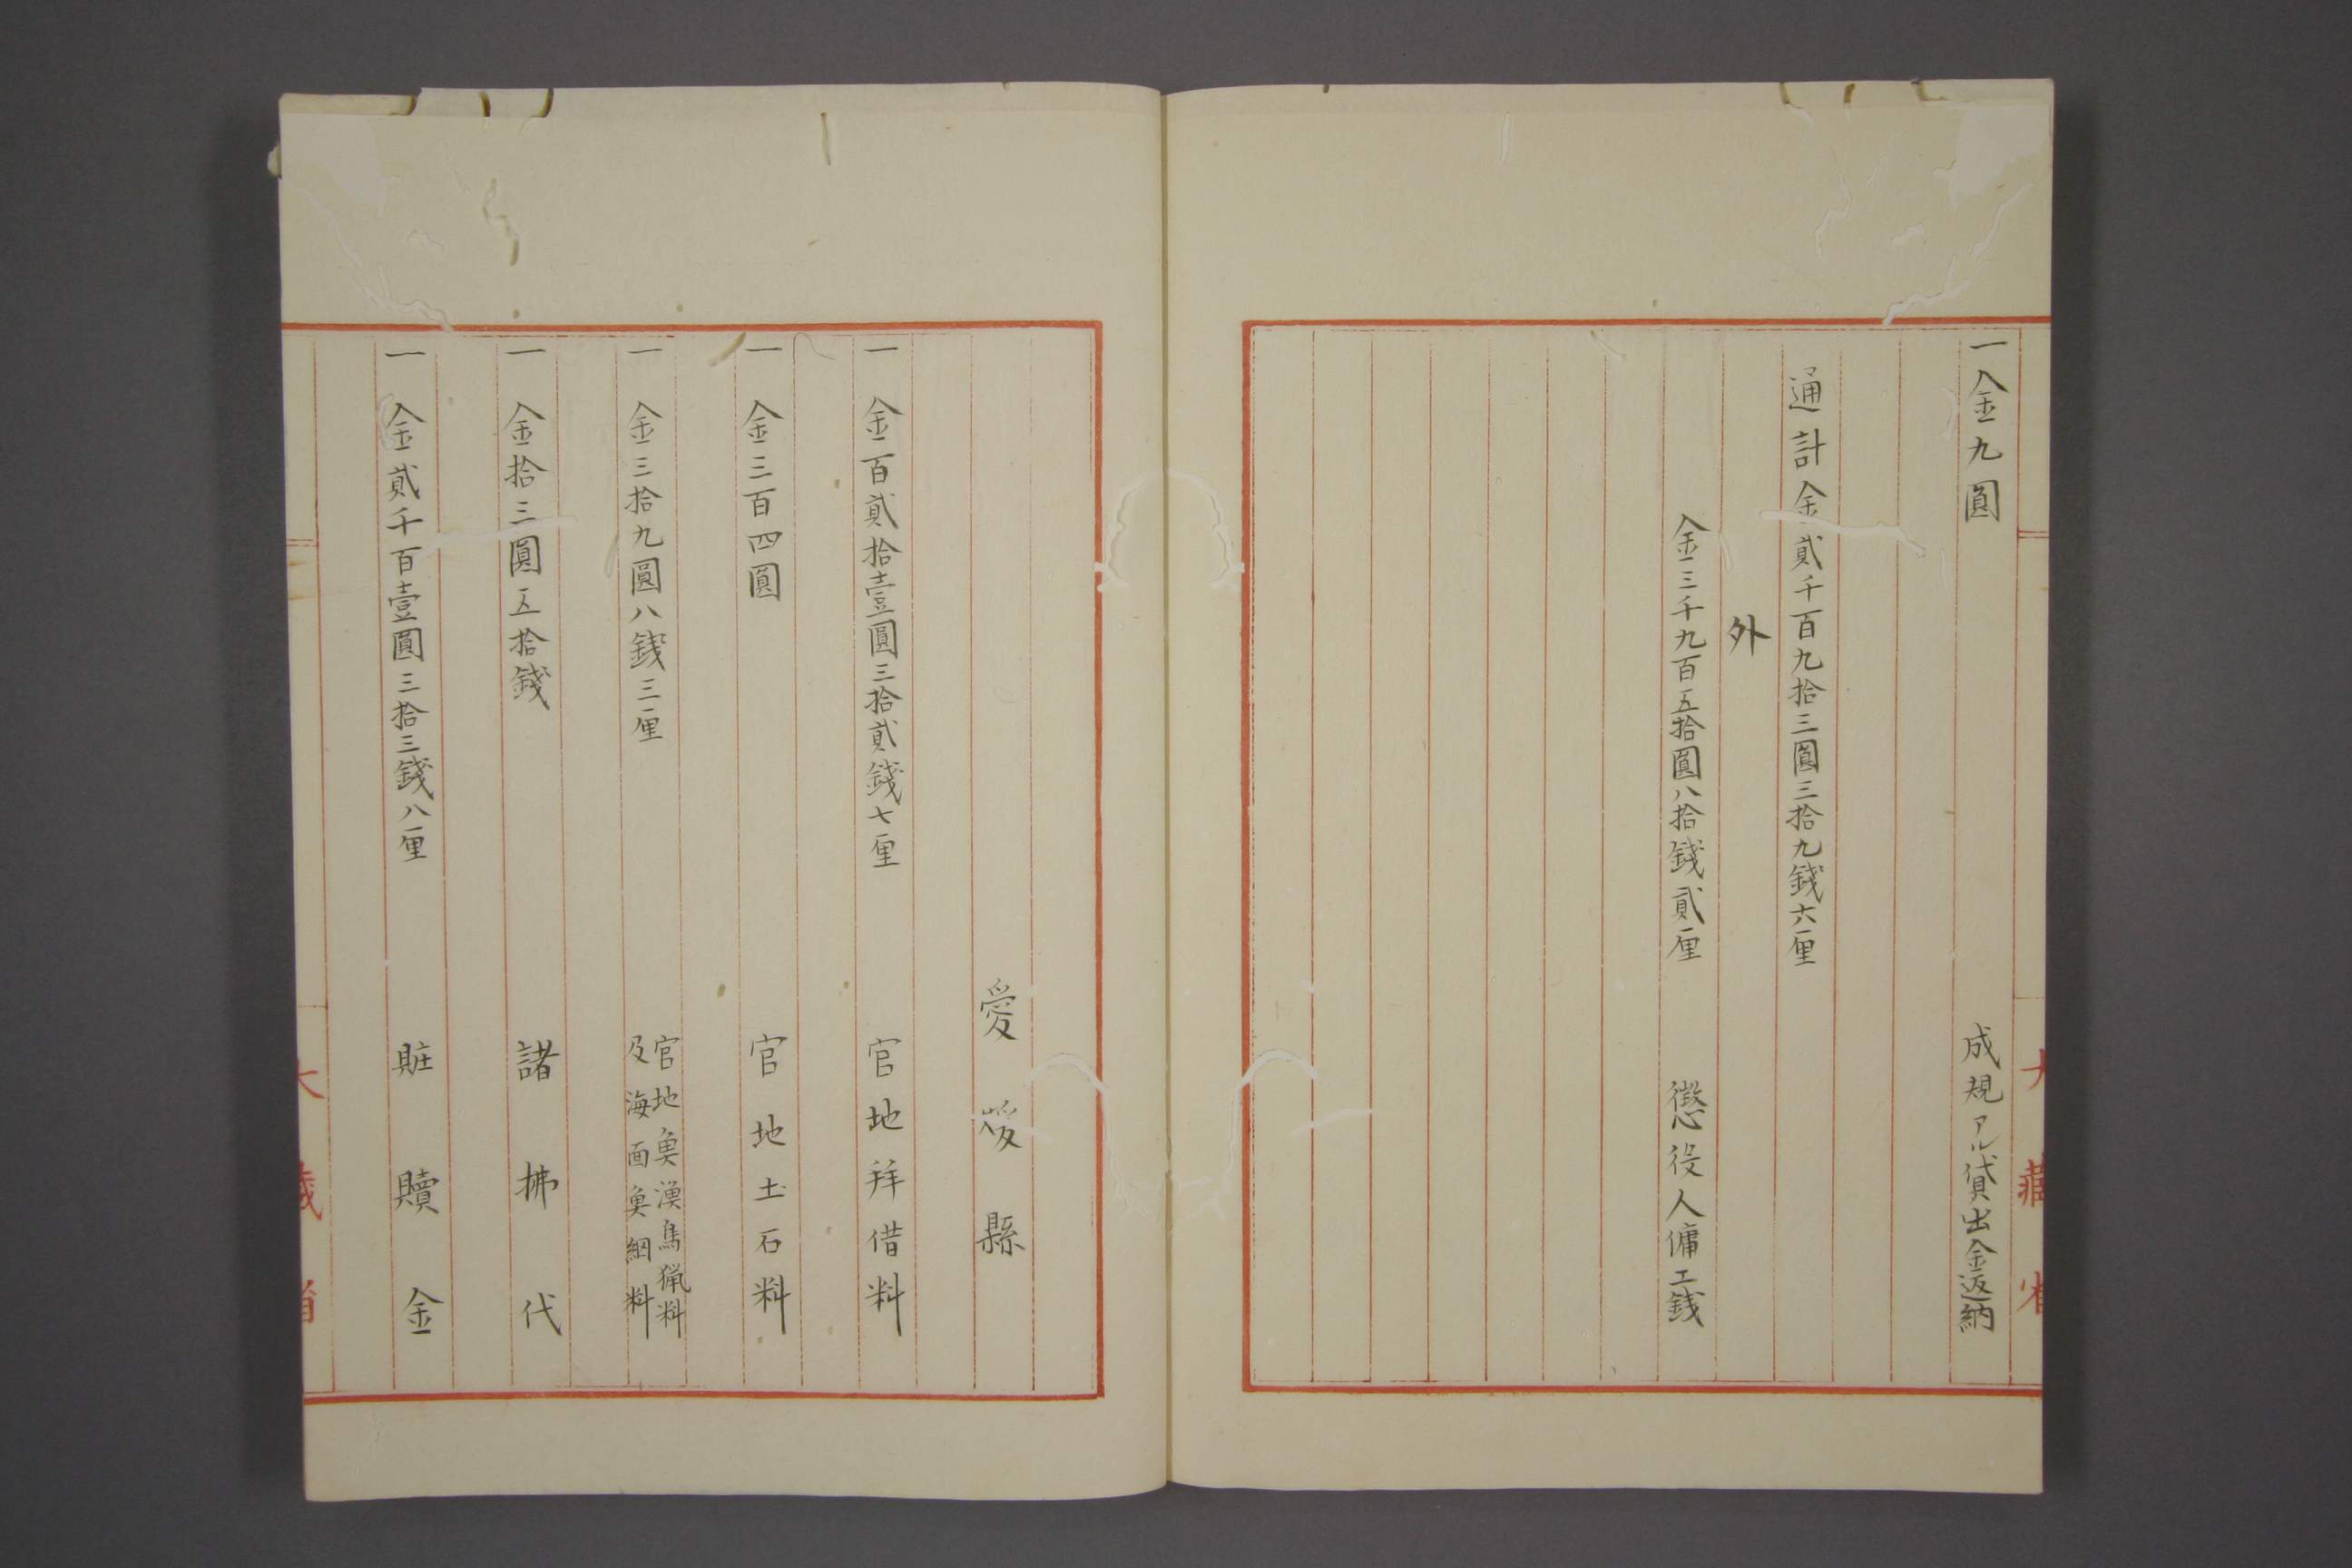 一金九圓 成規アル貸出金返納
通計金貳千百九拾三圓三拾九錢六厘
外
金三千九百五拾圓八拾錢貳厘 懲役人傭工錢
愛媛縣
一 金百貳拾壹圓三拾貳錢七厘 官地拜借料
一 金三百四圓 官地土石料
一 金三拾九圓八錢三厘 官地魚漁鳥猟料
及海面魚網料
一 金拾三圓五拾錢 諸拂代
一 金貳千百壹圓三拾三錢八厘 賍贖金
大藏省